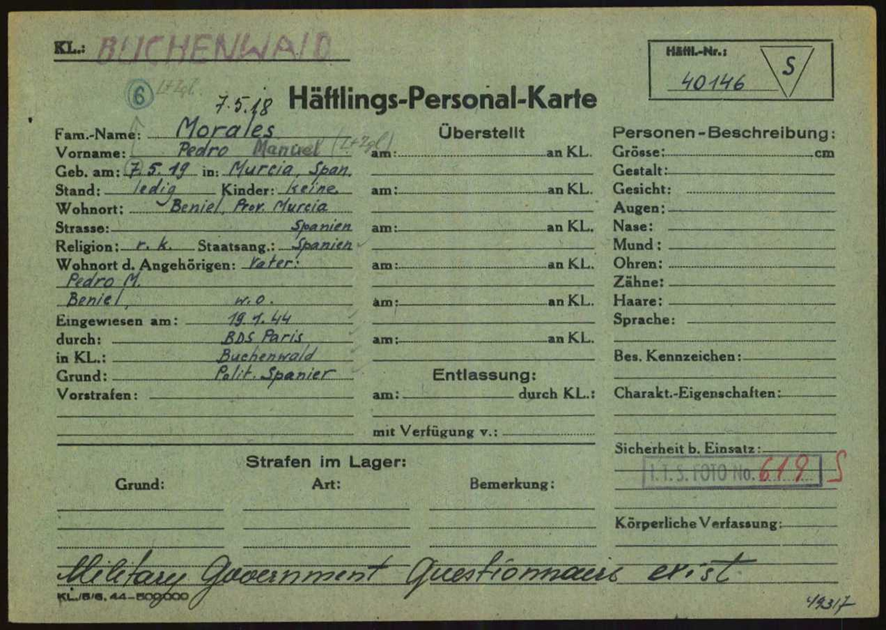 KL.: BUCHENWALD
Häftl.-Nr.:
40146 S
6
7.5.18 Häftlings-Personal-Karte
Fam.-Name: Morales
Vorname: Pedro Manuel
Geb. am: 7.5.19 in: Murcia, Span.
Stand: ledig Kinder: keine
Wohnort: Beniel, Prov. Murcia
Strasse: Spanien
Religion: r. k. Staatsang.: Spanien
Wohnort d. Angehörigen: Vater:
Pedro M.
Beniel, w.o.
Eingewiesen am: 19.1.44
durch: BDS Paris
in KL.: Buchenwald
Grund: Polit. Spanier
Vorstrafen:
Überstellt
am: an KL.
am: an KL.
am: an KL.
am: an KL.
am: an KL.
am: an KL.
Entlassung:
am: durch KL.:
mit Verfügung v.:
Personen-Beschreibung:
Grösse: cm
Gestalt:
Gesicht:
Augen:
Nase:
Mund:
Ohren:
Zähne:
Haare:
Sprache:
Bes. Kennzeichen:
Charakt.-Eigenschaften:
Sicherheit b. Einsatz:
I.T.S. FOTO No. 619 S
Körperliche Verfassung:
Strafen im Lager:
Grund: Art: Bemerkung:
Military Government Questionnaire exist.
KL./5/6. 44-500000
49317